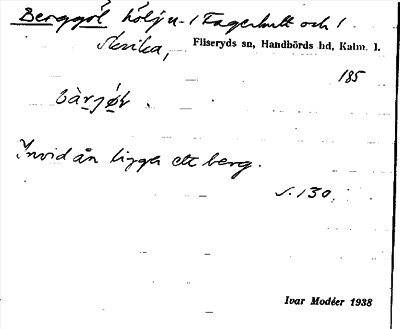 Berggöl hölj u. / Fagerhult och /
Fliseryds sn, Handbörds hd, Kalm. l.
185
Invid ån ligger ett berg.
s. 130.
Ivar Modéer 1938